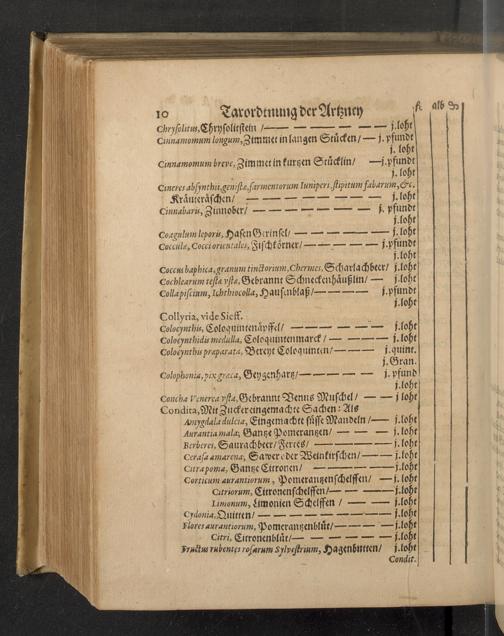 10 Taxordnung der Artzney fl. alb ₰
Chrysolitus, Chrysolitstein / — — — — — j. loht
Cinnamomum longum, Zimmet in langen Stücken / — — j. pfundt
j. loht
Cinnamomum breve, Zimmet in kurtzen Stücklin / — j. pfundt
j. loht
Cineres absynthii, genistæ, sarmentorum Iuniperi, stipitum fabarum, &c.
Kräuteräschen / — — — — — — j. loht
Cinnabaris, Zinnober / — — — — — — j. pfundt
j. loht
Coagulum leporis, Hasen Gerinsel / — — — — j. loht
Coccula, Cocci orientales, Fischkörner / — — — — j. pfundt
j. loht
Coccus baphica, granum tinctorium, Chermes, Scharlachbeer / j. loht
Cochlearum testa vsta, Gebrannte Schneckenhäußlin / — j. loht
Colla piscium, Ichthiocolla, Hausenblaß / — — — j. pfundt
j. loht
Collyria, vide Sieff.
Colocynthis, Coloquintenäpffel / — — — — j. loht
Colocynthidis medulla, Coloquintenmarck / — — — j. loht
Colocynthis præparata, Bereyt Coloquinten / — — — j. quint.
j. Gran.
Colophonia, pix græca, Geygenhartz / — — — — j. pfund
j. loht
Concha Venerea vsta, Gebrannte Venus Muschel / — — j. loht
Condita, Mit Zucker eingemachte Sachen: Als
Amygdala dulcia, Eingemachte süsse Mandeln / — — j. loht
Aurantia mala, Gantze Pomerantzen / — — — j. loht
Berberes, Saurachbeer / Ferces / — — — — j. loht
Cerasa amarena, Sawer oder Weinkirschen / — — — j. loht
Citra poma, Gantze Citronen / — — — — j. loht
Corticum aurantiorum, Pomerantzenschelffen / — — j. loht
Citriorum, Citronenschelffen / — — — — j. loht
Limonum, Limonien Schelffen / — — — j. loht
Cydonia, Quitten / — — — — — — j. loht
Flores aurantiorum, Pomerantzenblüt / — — — — j. loht
Citri, Citronenblüt / — — — — — j. loht
Fructus rubentes rosarum Sylvestrium, Hagenbutten / j. loht
Condit.